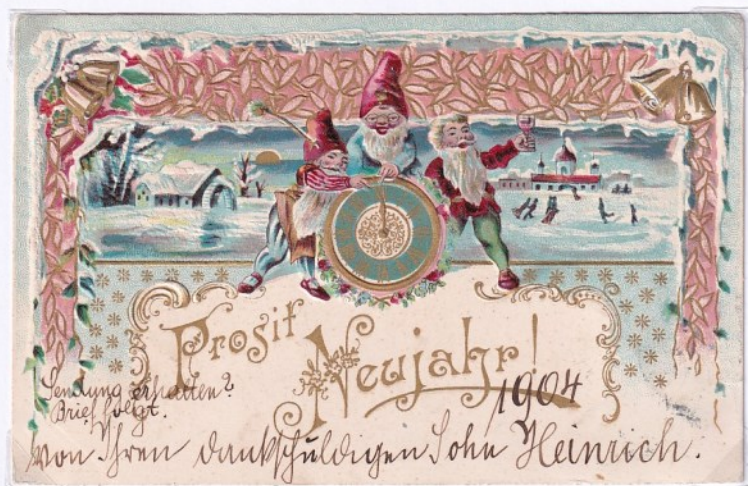 Prosit
Neujahr!
1904
Sendung erhalten?
Brief folgt.
von Ihren dankschuldigen Sohn Heinrich.